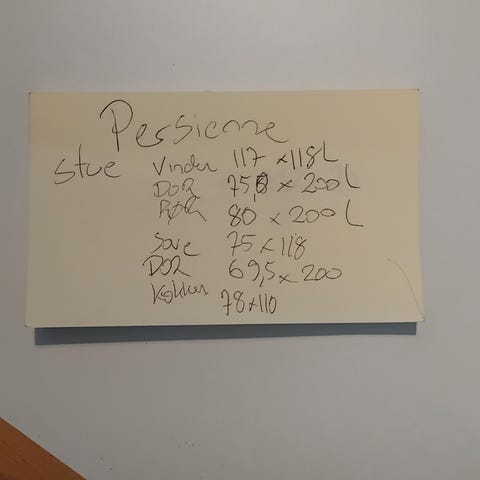 Persienne
stue Vindu 117 x 118 L
DØR 75,8 x 200 L
DØR 80 x 200 L
Sove 75 x 118
DØR 69,5 x 200
Kjøkken 78 x 110